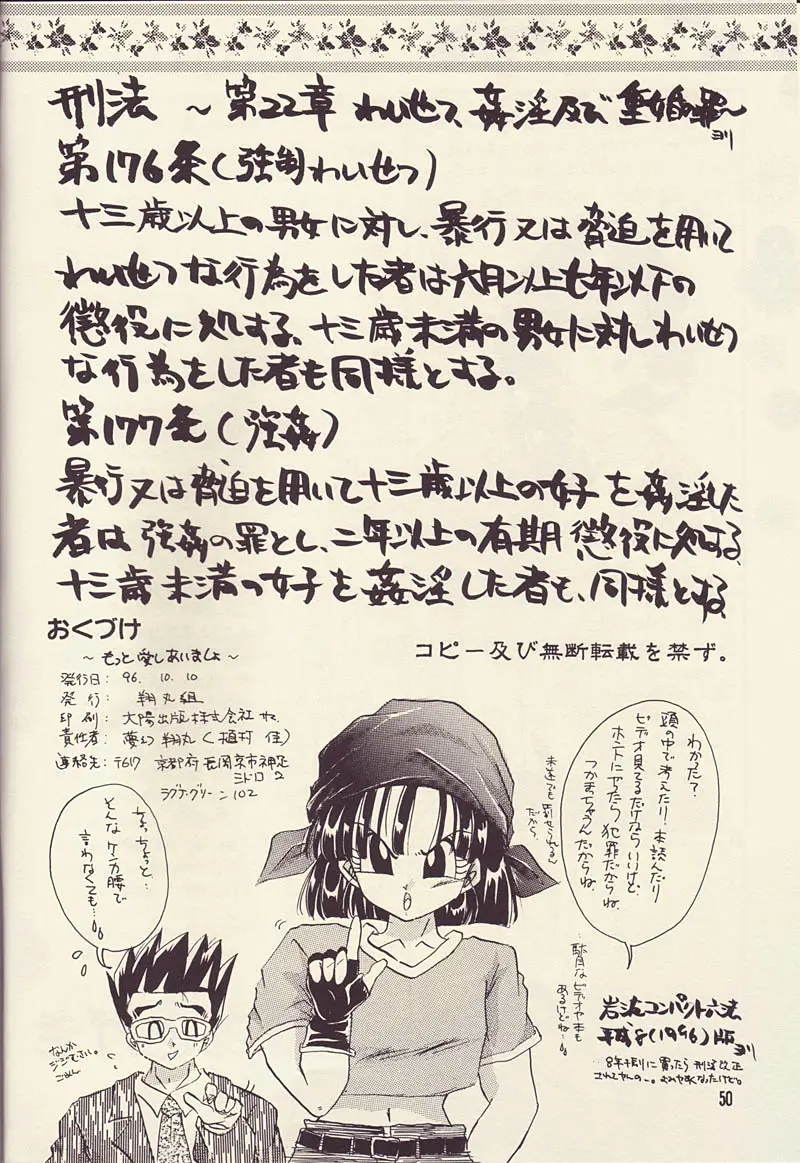 刑法 ～第22章 わいせつ、姦淫及び重婚の罪～ ヨリ
第176条(強制わいせつ)
十三歳以上の男女に対し、暴行又は脅迫を用いて
わいせつな行為をした者は六月以上七年以下の
懲役に処する、十三歳未満の男女に対しわいせつ
な行為をした者も同様とする。
第177条(強姦)
暴行又は脅迫を用いて十三歳以上の女子を姦淫した
者は強姦の罪とし、二年以上の有期懲役に処する、
十三歳未満の女子を姦淫した者も、同様とする
おくづけ
～もっと愛しあいましょ～
発行日: 96. 10. 10
発行: 翔丸組
印刷: 大陽出版株式会社 サマ
責任者: 夢幻 翔丸(植村 佳)
連絡先: 〒617 京都府長岡京市神足
ミドロ 2
ラグナ・グリーン102
コピー及び無断転載を禁ず。
わかった?
頭の中で考えたり、本読んだり
ビデオ見てるだけならいいけど、
ホントにヤったら犯罪だからね、
つかまっちゃうんだからね。
未遂でも罰せられるん
だから。
…駄目なビデオや本も
あるけどね…
ちょ、ちょっと…
そんなケンカ腰で
言わなくても…
なんか
ごめん
岩波コンパクト六法
平成8(1996)版 ヨリ
8年千刷に買ったら刑法改正
されてやんのー。よみやすくなったけど。
50